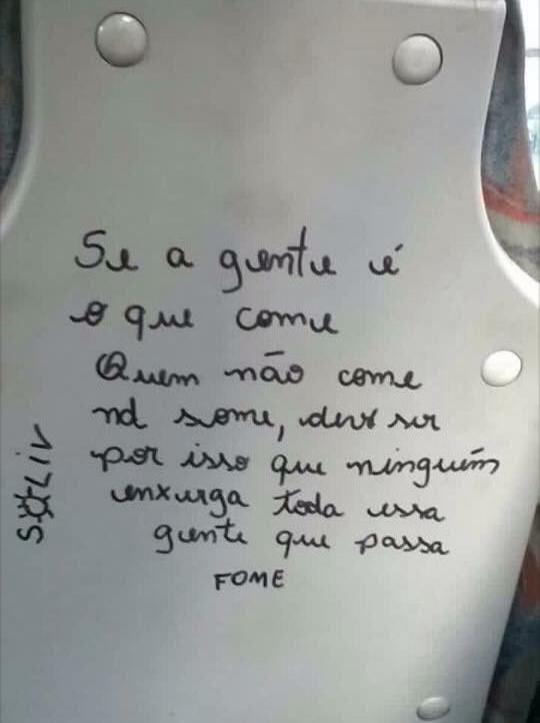 Se a gente é
o que come
Quem não come
nd some, deve ser
por isso que ninguém
enxerga toda essa
gente que passa
FOME